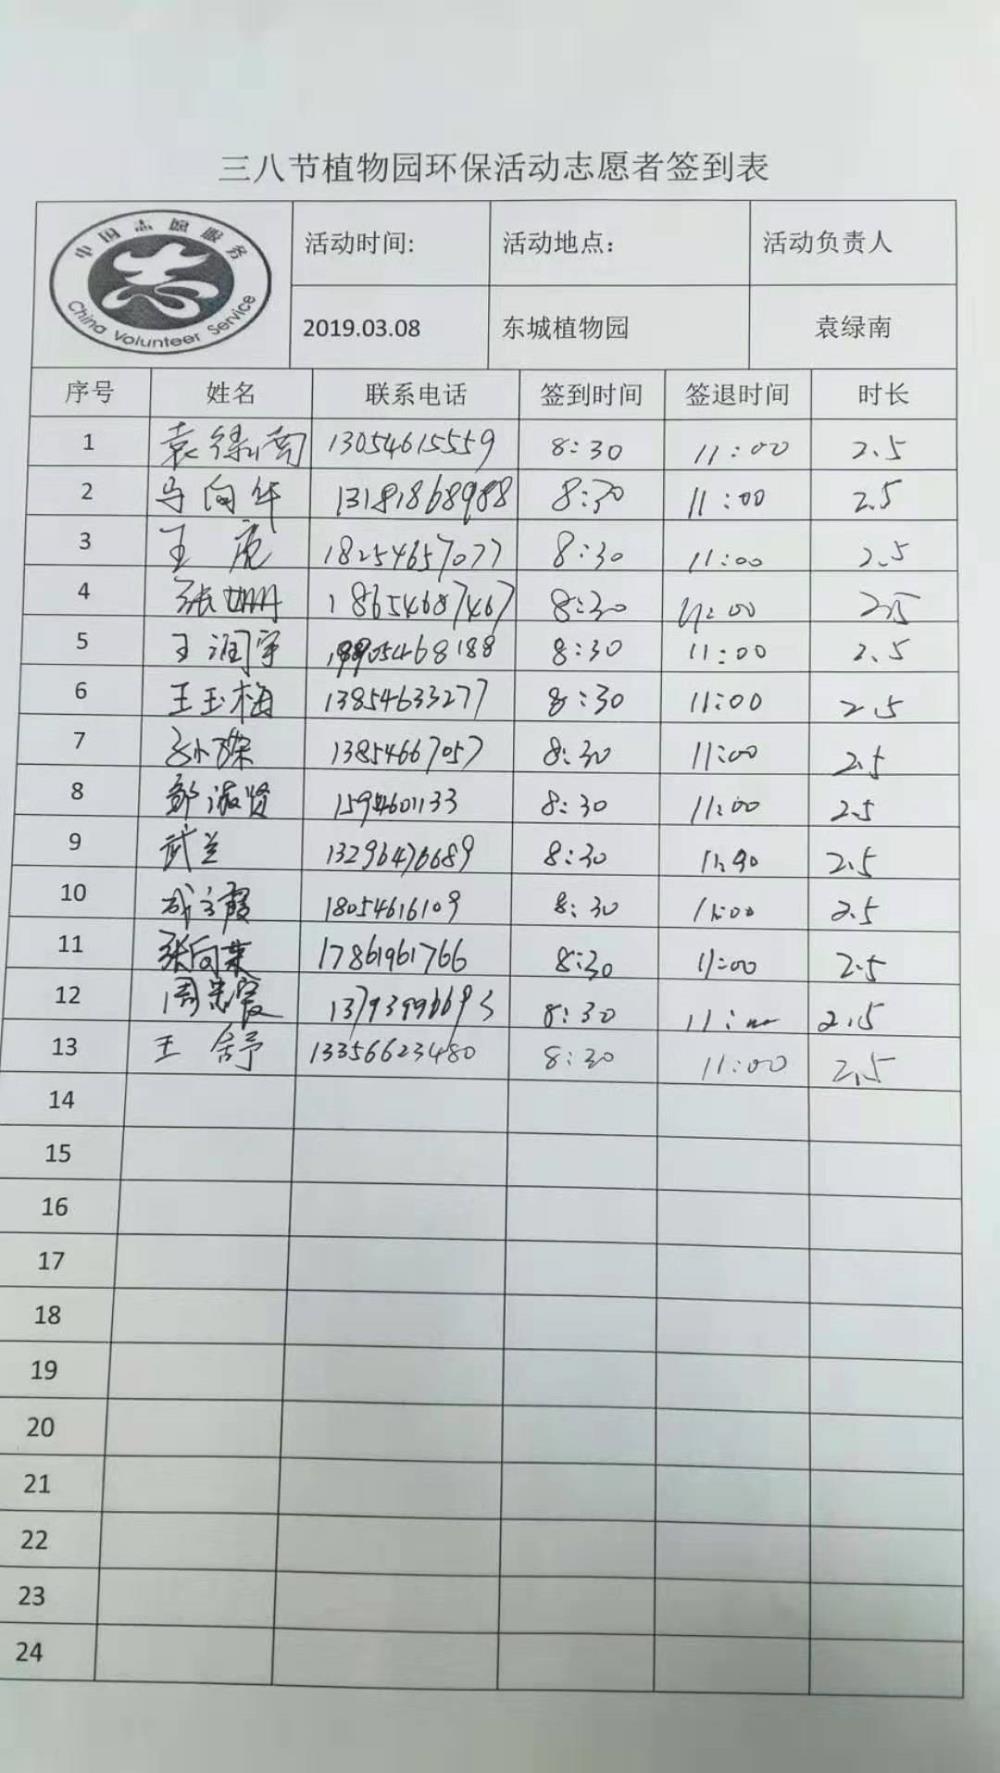 三八节植物园环保活动志愿者签到表
中国志愿服务
China Volunteer Service
活动时间: 活动地点: 活动负责人
2019.03.08 东城植物园 袁绿南
序号 姓名 联系电话 签到时间 签退时间 时长
1 袁绿南 13054615559 8:30 11:00 2.5
2 马向华 13181868988 8:30 11:00 2.5
3 王虎 18254657077 8:30 11:00 2.5
4 张姗 18654687467 8:30 11:00 2.5
5 王润宇 8:30 11:00 2.5
6 王玉梅 13854633277 8:30 11:00 2.5
7 13854667057 8:30 11:00 2.5
8 郭淑贤 8:30 11:00 2.5
9 武兰 13296476689 8:30 2.5
10 18054616109 8:30 11:00 2.5
11 张向荣 17861961766 8:30 11:00 2.5
12 周 8:30 2.5
13 王舒 13356623480 8:30 11:00 2.5
14
15
16
17
18
19
20
21
22
23
24